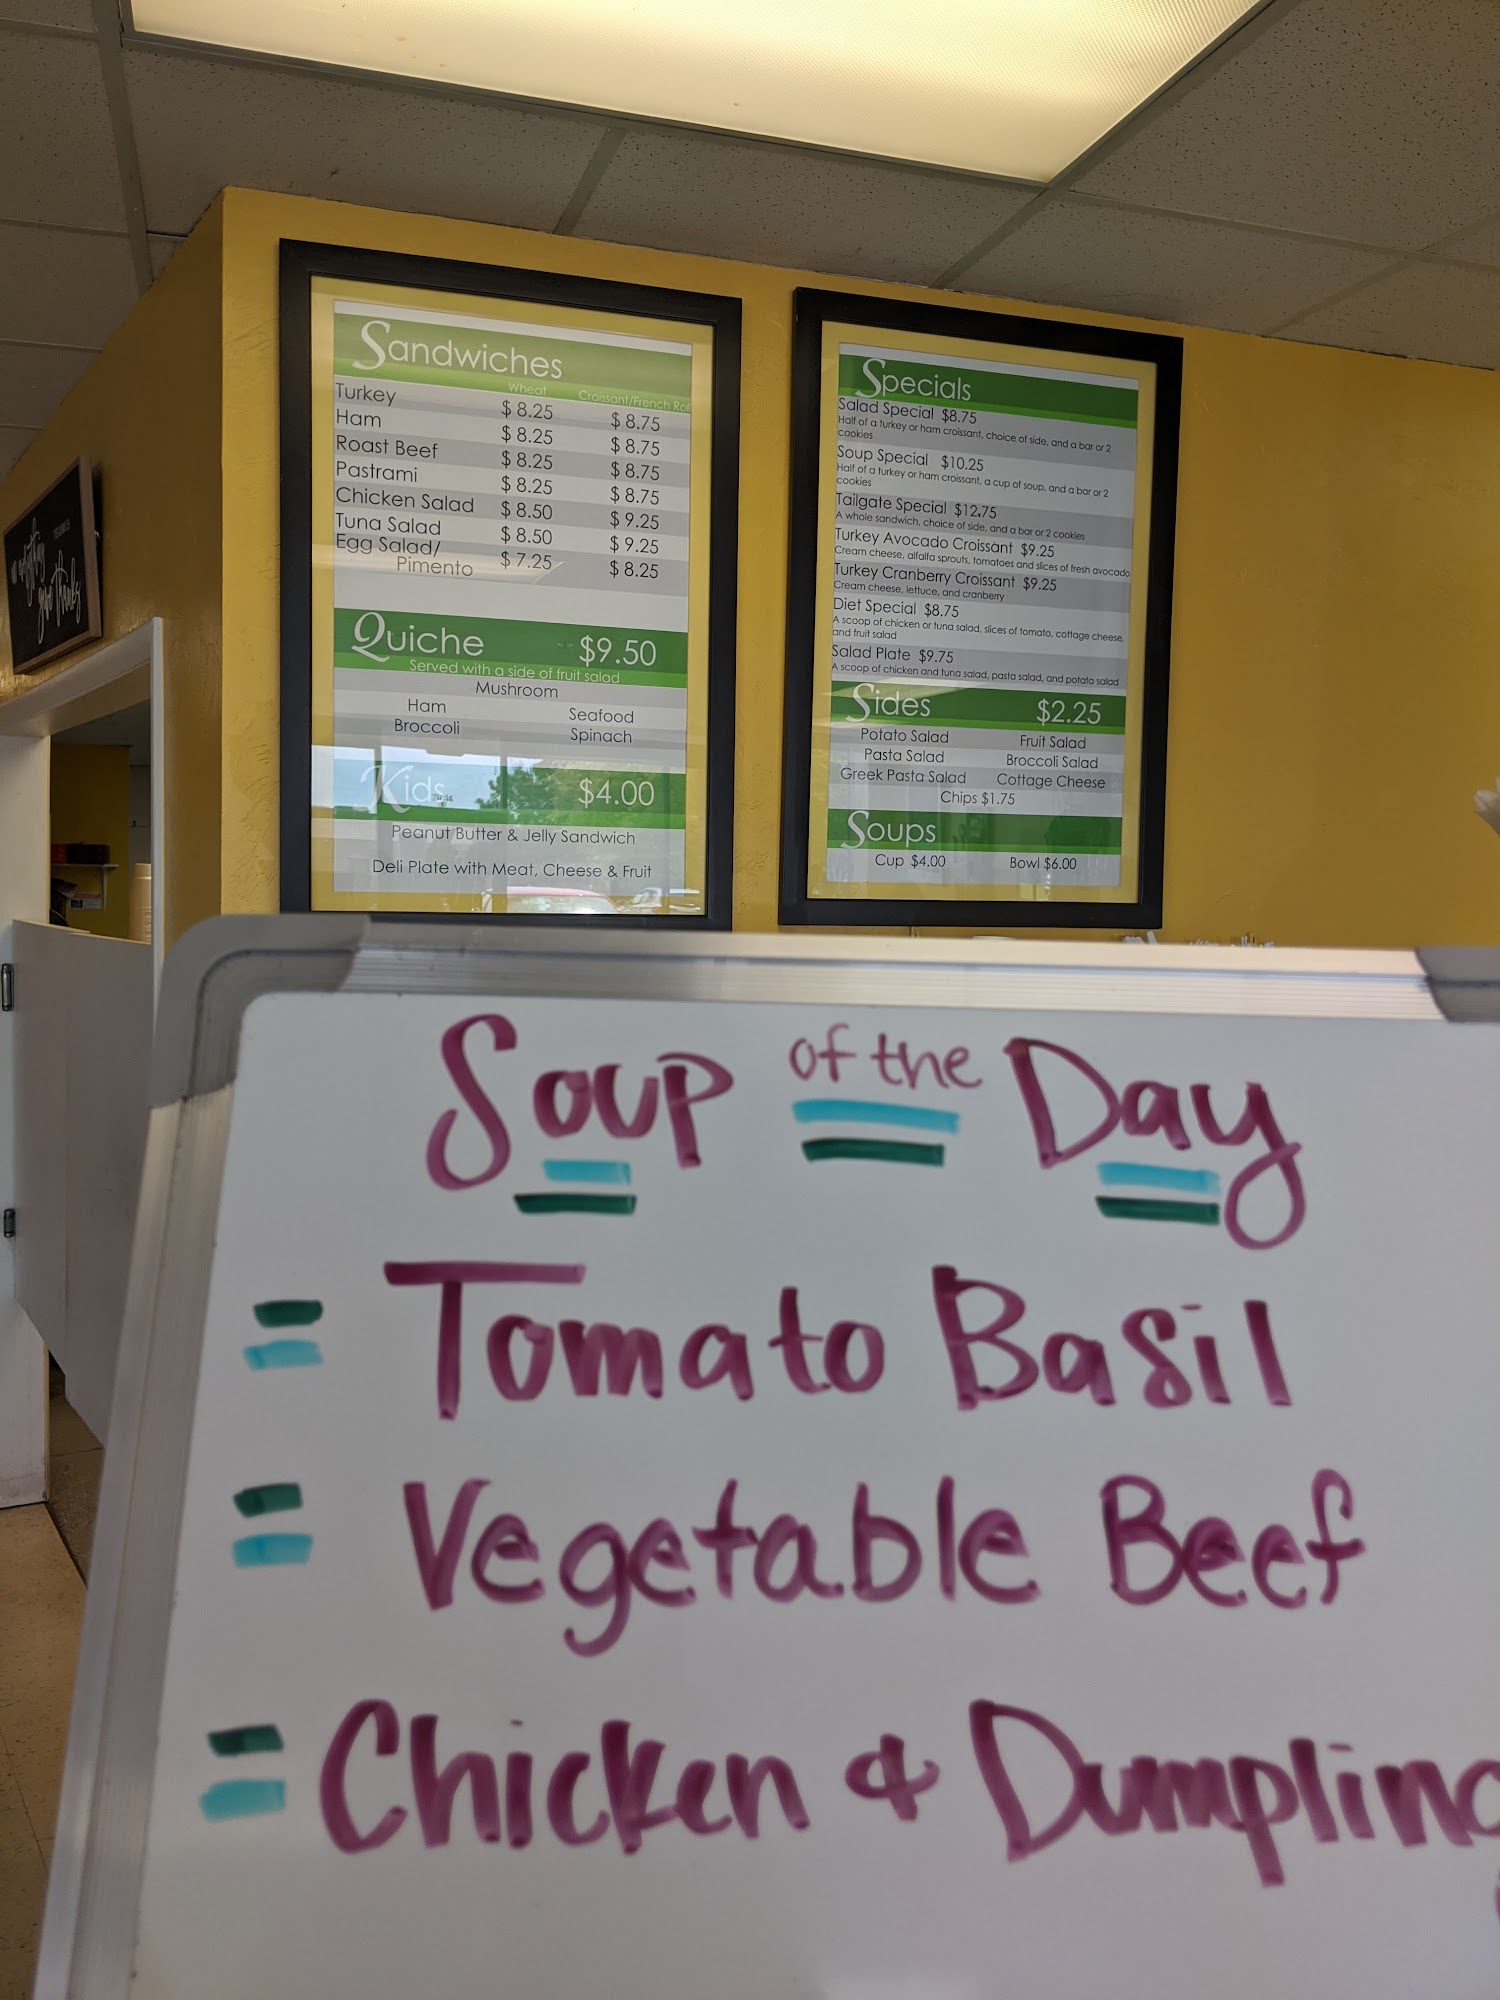 in everything
give thanks
Sandwiches
Wheat Croissant/French Roll
Turkey $8.25 $8.75
Ham $8.25 $8.75
Roast Beef $8.25 $8.75
Pastrami $8.25 $8.75
Chicken Salad $8.50 $9.25
Tuna Salad $8.50 $9.25
Egg Salad/
Pimento $7.25 $8.25
Quiche $9.50
Served with a side of fruit salad
Mushroom
Ham Seafood
Broccoli Spinach
Kids $4.00
Peanut Butter & Jelly Sandwich
Deli Plate with Meat, Cheese & Fruit
Specials
Salad Special $8.75
Half of a turkey or ham croissant, choice of side, and a bar or 2
cookies
Soup Special $10.25
Half of a turkey or ham croissant, a cup of soup, and a bar or 2
cookies
Tailgate Special $12.75
A whole sandwich, choice of side, and a bar or 2 cookies
Turkey Avocado Croissant $9.25
Cream cheese, alfalfa sprouts, tomatoes and slices of fresh avocado
Turkey Cranberry Croissant $9.25
Cream cheese, lettuce, and cranberry
Diet Special $8.75
A scoop of chicken or tuna salad, slices of tomato, cottage cheese,
and fruit salad
Salad Plate $9.75
A scoop of chicken and tuna salad, pasta salad, and potato salad
Sides $2.25
Potato Salad Fruit Salad
Pasta Salad Broccoli Salad
Greek Pasta Salad Cottage Cheese
Chips $1.75
Soups
Cup $4.00 Bowl $6.00
Soup of the Day
Tomato Basil
Vegetable Beef
Chicken & Dumpling